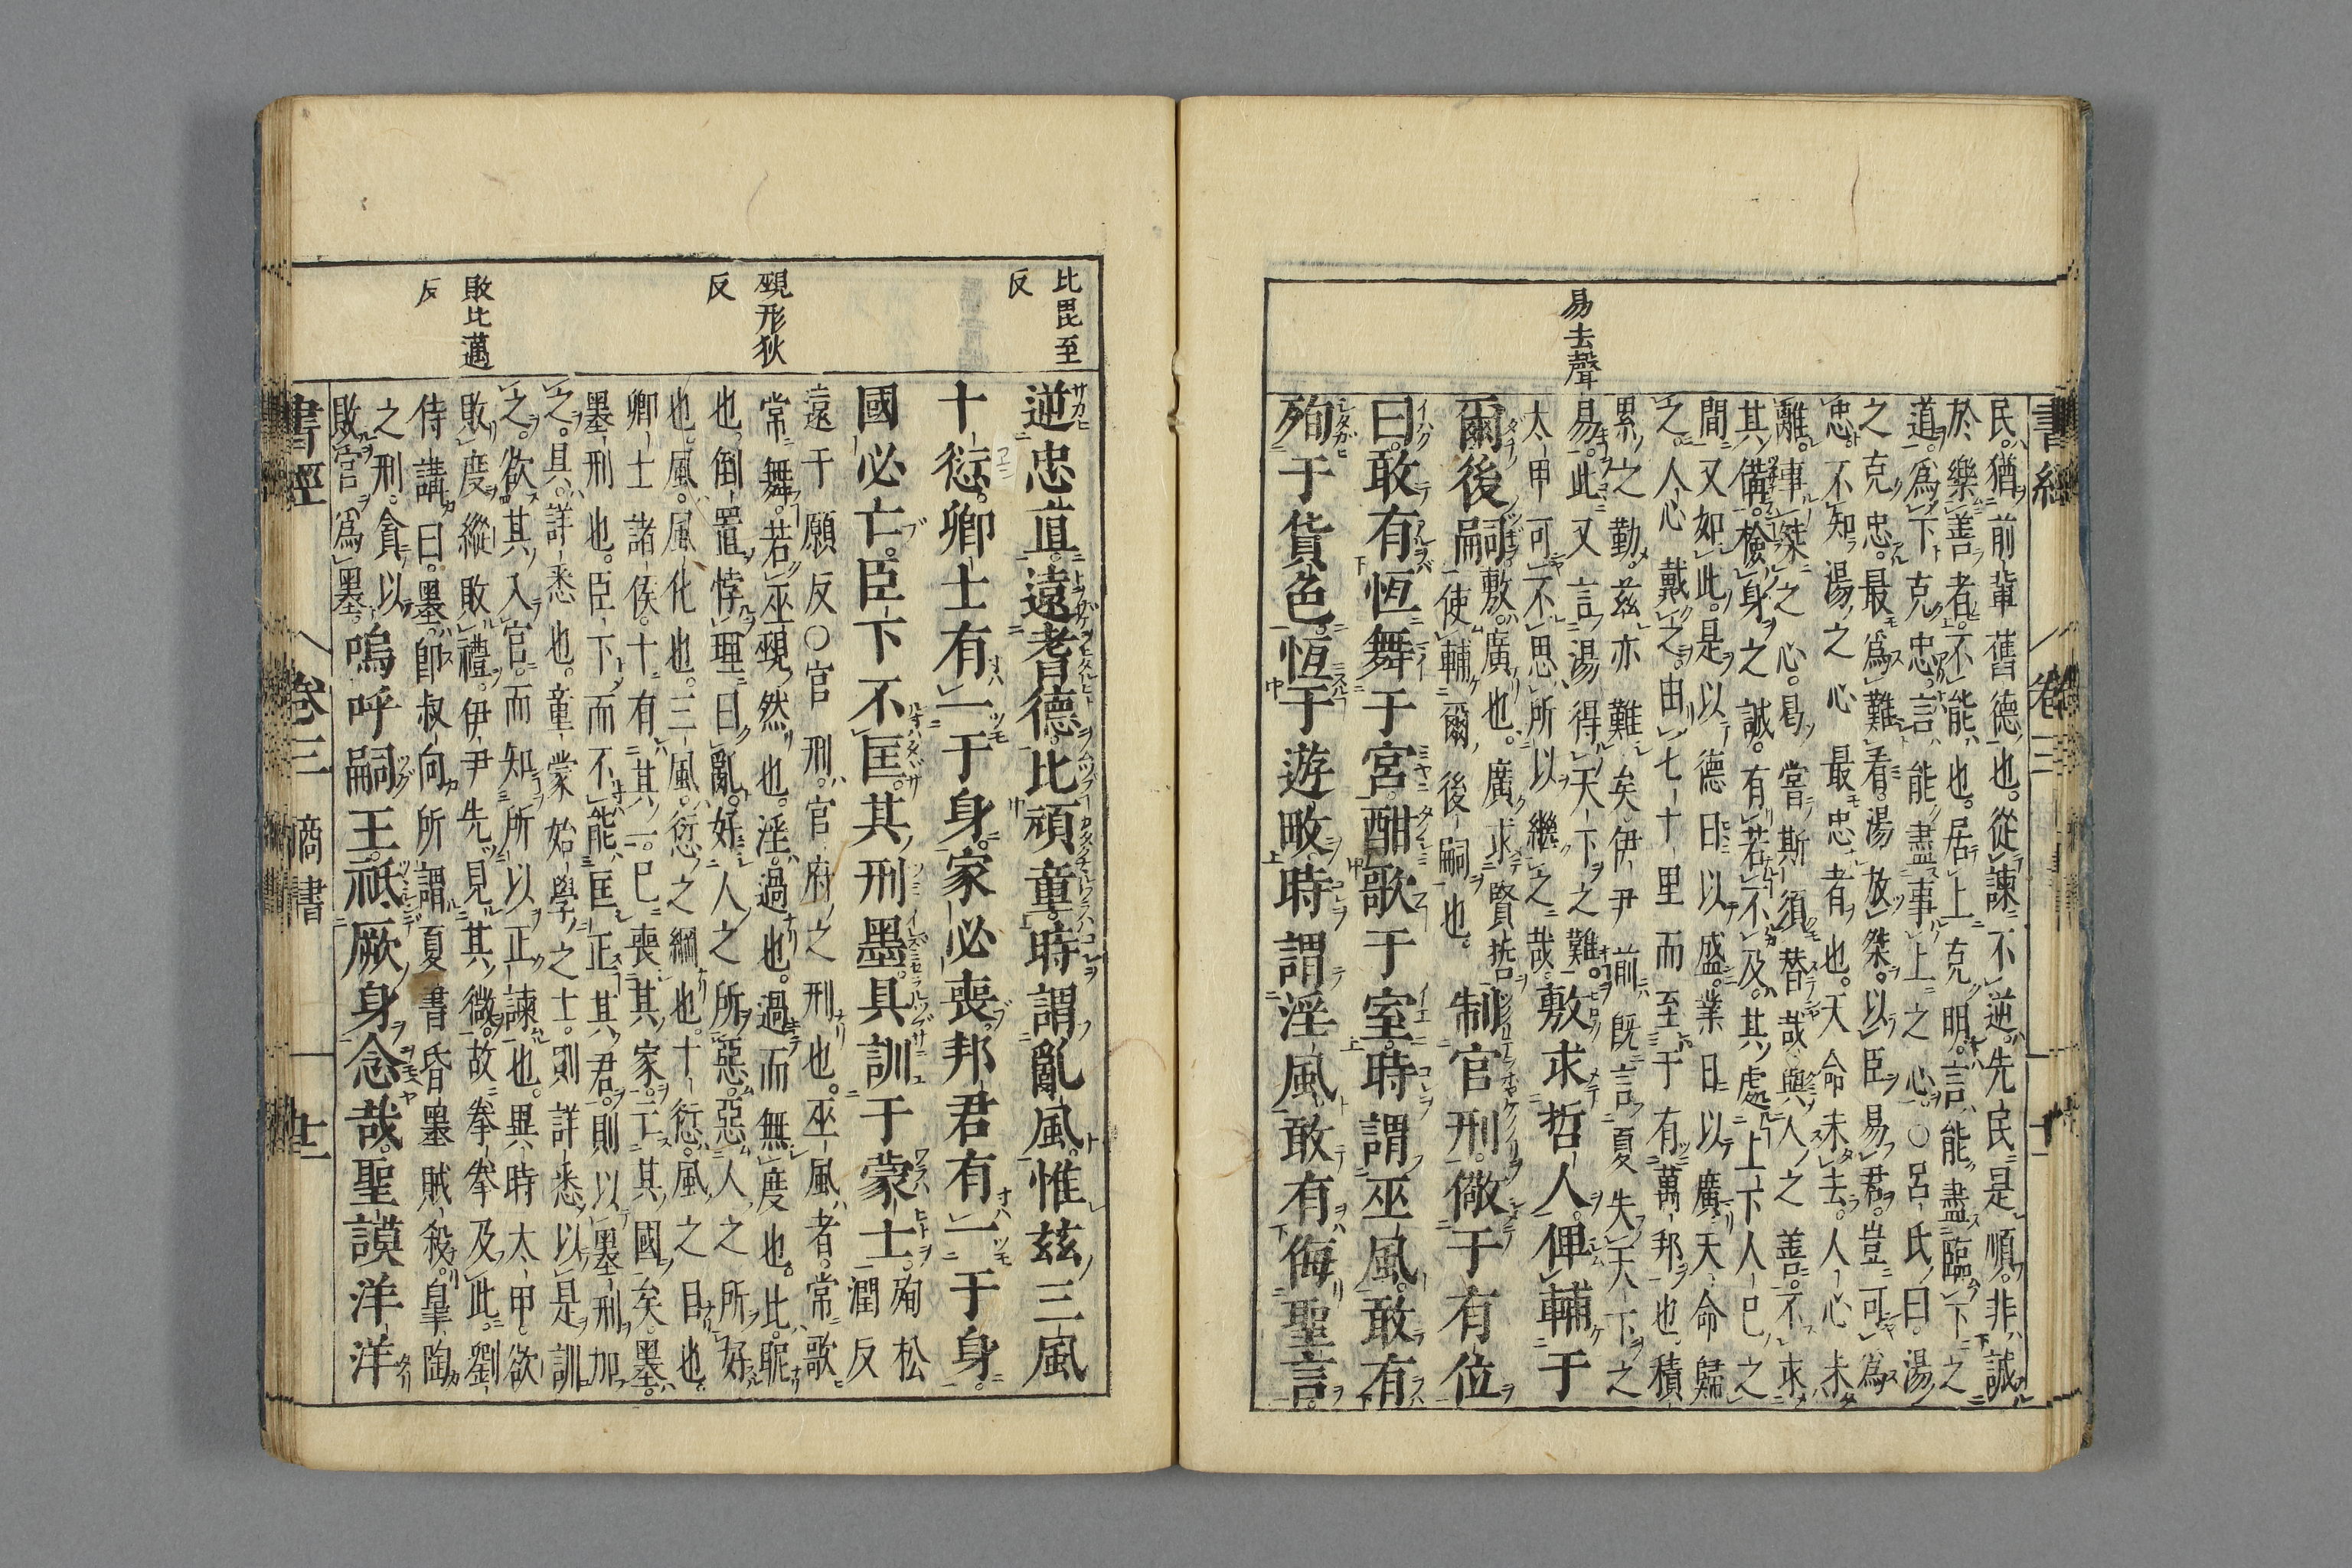 易去聲
民猶前輩舊德也從諫不逆先民是順非誠
於樂善者不能也居上克明言能盡臨下之
道爲下克忠言能盡事上之心○呂氏曰湯
之克忠最爲難看湯放桀以臣易君豈可爲
忠不知湯之心最忠者也天命未去人心未
離事桀之心曷嘗斯須替哉與人之善不求
其備檢身之誠有若不及其處上下人己之
間又如此是以德日以盛業日以廣天命歸
之人心戴之由七十里而至于有萬邦也積
累之勤茲亦難矣伊尹前既言夏失天下之
易此又言湯得天下之難
太甲可不思所以繼之哉敷求哲人俾輔于
爾後嗣敷廣也廣求賢哲
使輔爾後嗣也制官刑儆于有位
曰敢有恆舞于宮酣歌于室時謂巫風敢有
殉于貨色恆于遊畋時謂淫風敢有侮聖言
書經 卷三 十一
比毘至
反
覡形狄
反
敗比邁
反
逆忠直遠耆德比頑童時謂亂風惟茲三風
十愆卿士有一于身家必喪邦君有一于身
國必亡臣下不匡其刑墨具訓于蒙士殉松
潤反
遠于願反○官刑官府之刑也巫風者常歌
常舞若巫覡然也淫過也過而無度也比昵
也倒置悖理曰亂好人之所惡惡人之所好
也風風化也三風愆之綱也十愆風之目也
卿士諸侯十有其一已喪其家亡其國矣墨
墨刑也臣下而不能匡正其君則以墨刑加
之具詳悉也童蒙始學之士則詳悉以是訓
之欲其入官而知所以正諫也異時太甲欲
敗度縱敗禮伊尹先見其微故拳拳及此劉
侍講曰墨卽叔向所謂夏書昏墨賊殺皐陶
之刑貪以
敗官爲墨嗚呼嗣王祗厥身念哉聖謨洋洋
書經 卷三 商書 十一